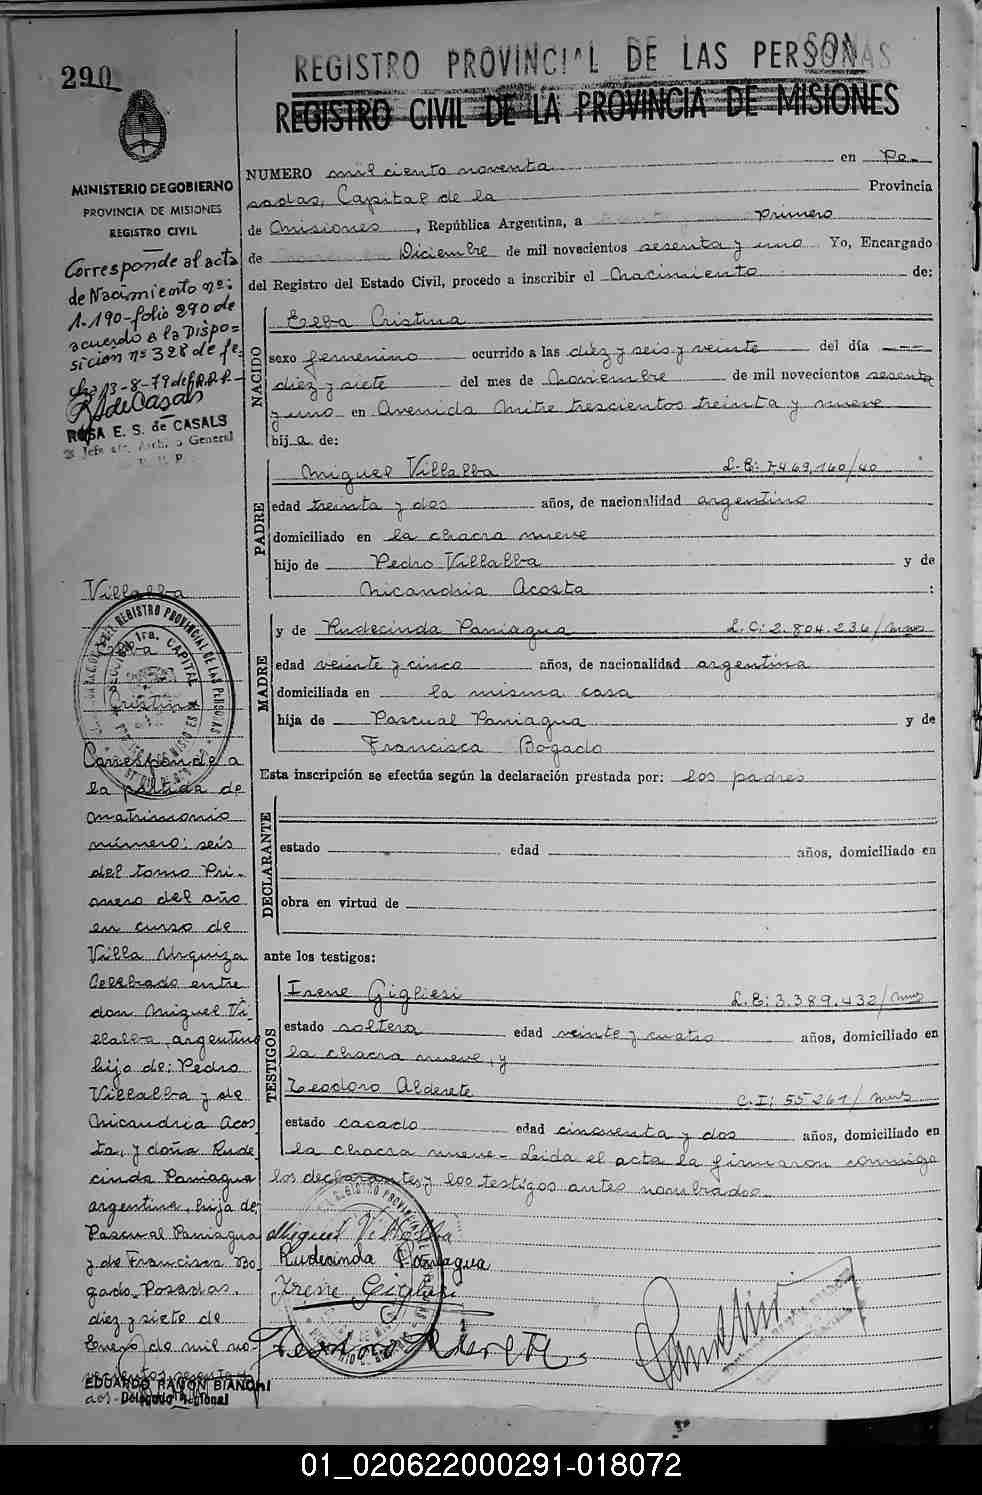 290
REGISTRO PROVINCIAL DE LAS PERSONAS
REGISTRO CIVIL DE LA PROVINCIA DE MISIONES
MINISTERIO DE GOBIERNO
PROVINCIA DE MISIONES
REGISTRO CIVIL
Corresponde al acta
de Nacimiento nº:
1-190-folio 290 de
acuerdo a la Dispo=
sicion nº 328 de fe
cha 13-8-79 del R.P.P.
ROSA E. S. de CASALS
NUMERO mil ciento noventa en Po-
sadas, Capital de la Provincia
de Misiones, República Argentina, a primero
de Diciembre de mil novecientos sesenta y uno Yo, Encargado
del Registro del Estado Civil, procedo a inscribir el Nacimiento de:
NACIDO
Elba Cristina
sexo femenino ocurrido a las diez y seis y veinte del día
diez y siete del mes de Noviembre de mil novecientos sesenta
y uno en Avenida Mitre trescientos treinta y nueve
hija de:
PADRE
Miguel Villalba L.E: 7,469,160/40
edad treinta y dos años, de nacionalidad argentino
domiciliado en la chacra nueve
hijo de Pedro Villalba y de
Nicandria Acosta :
MADRE
y de Rudecinda Paniagua L.C: 2.804.236/mnes
edad veinte y cinco años, de nacionalidad argentina
domiciliada en la misma casa
hija de Pascual Paniagua y de
Francisca Bogado
Esta inscripción se efectúa según la declaración prestada por: los padres
DECLARANTE
estado edad años, domiciliado en
obra en virtud de
ante los testigos:
TESTIGOS
Irene Gigliesi L.E: 3.389.432/mnes
estado soltera edad veinte y cuatro años, domiciliado en
la chacra nueve, y
Teodoro Alderete C.I: 55261/mnes
estado casado edad cincuenta y dos años, domiciliado en
la chacra nueve - Leida el acta la firmaron conmigo
los declarantes y los testigos antes nombrados
Miguel Villalba
Rudecinda Paniagua
Irene Gigliesi
Teodoro Alderete
Villalba
Elba
Cristina
Corresponde a
la partida de
matrimonio
número: seis
del tomo Pri-
mero del año
en curso de
Villa Urquiza
Celebrado entre
don Miguel Vi-
llalba, argentino
hijo de: Pedro
Villalba y de
Nicandria Acos-
ta, y doña Rude
cinda Paniagua
argentina, hija de:
Pascual Paniagua
y de Francisca Bo-
gado. Posadas,
diez y siete de
Enero de mil no-
vecientos sesenta y
dos-
EDUARDO RAMON BIANCHI
Delegado Regional
01_020622000291-018072